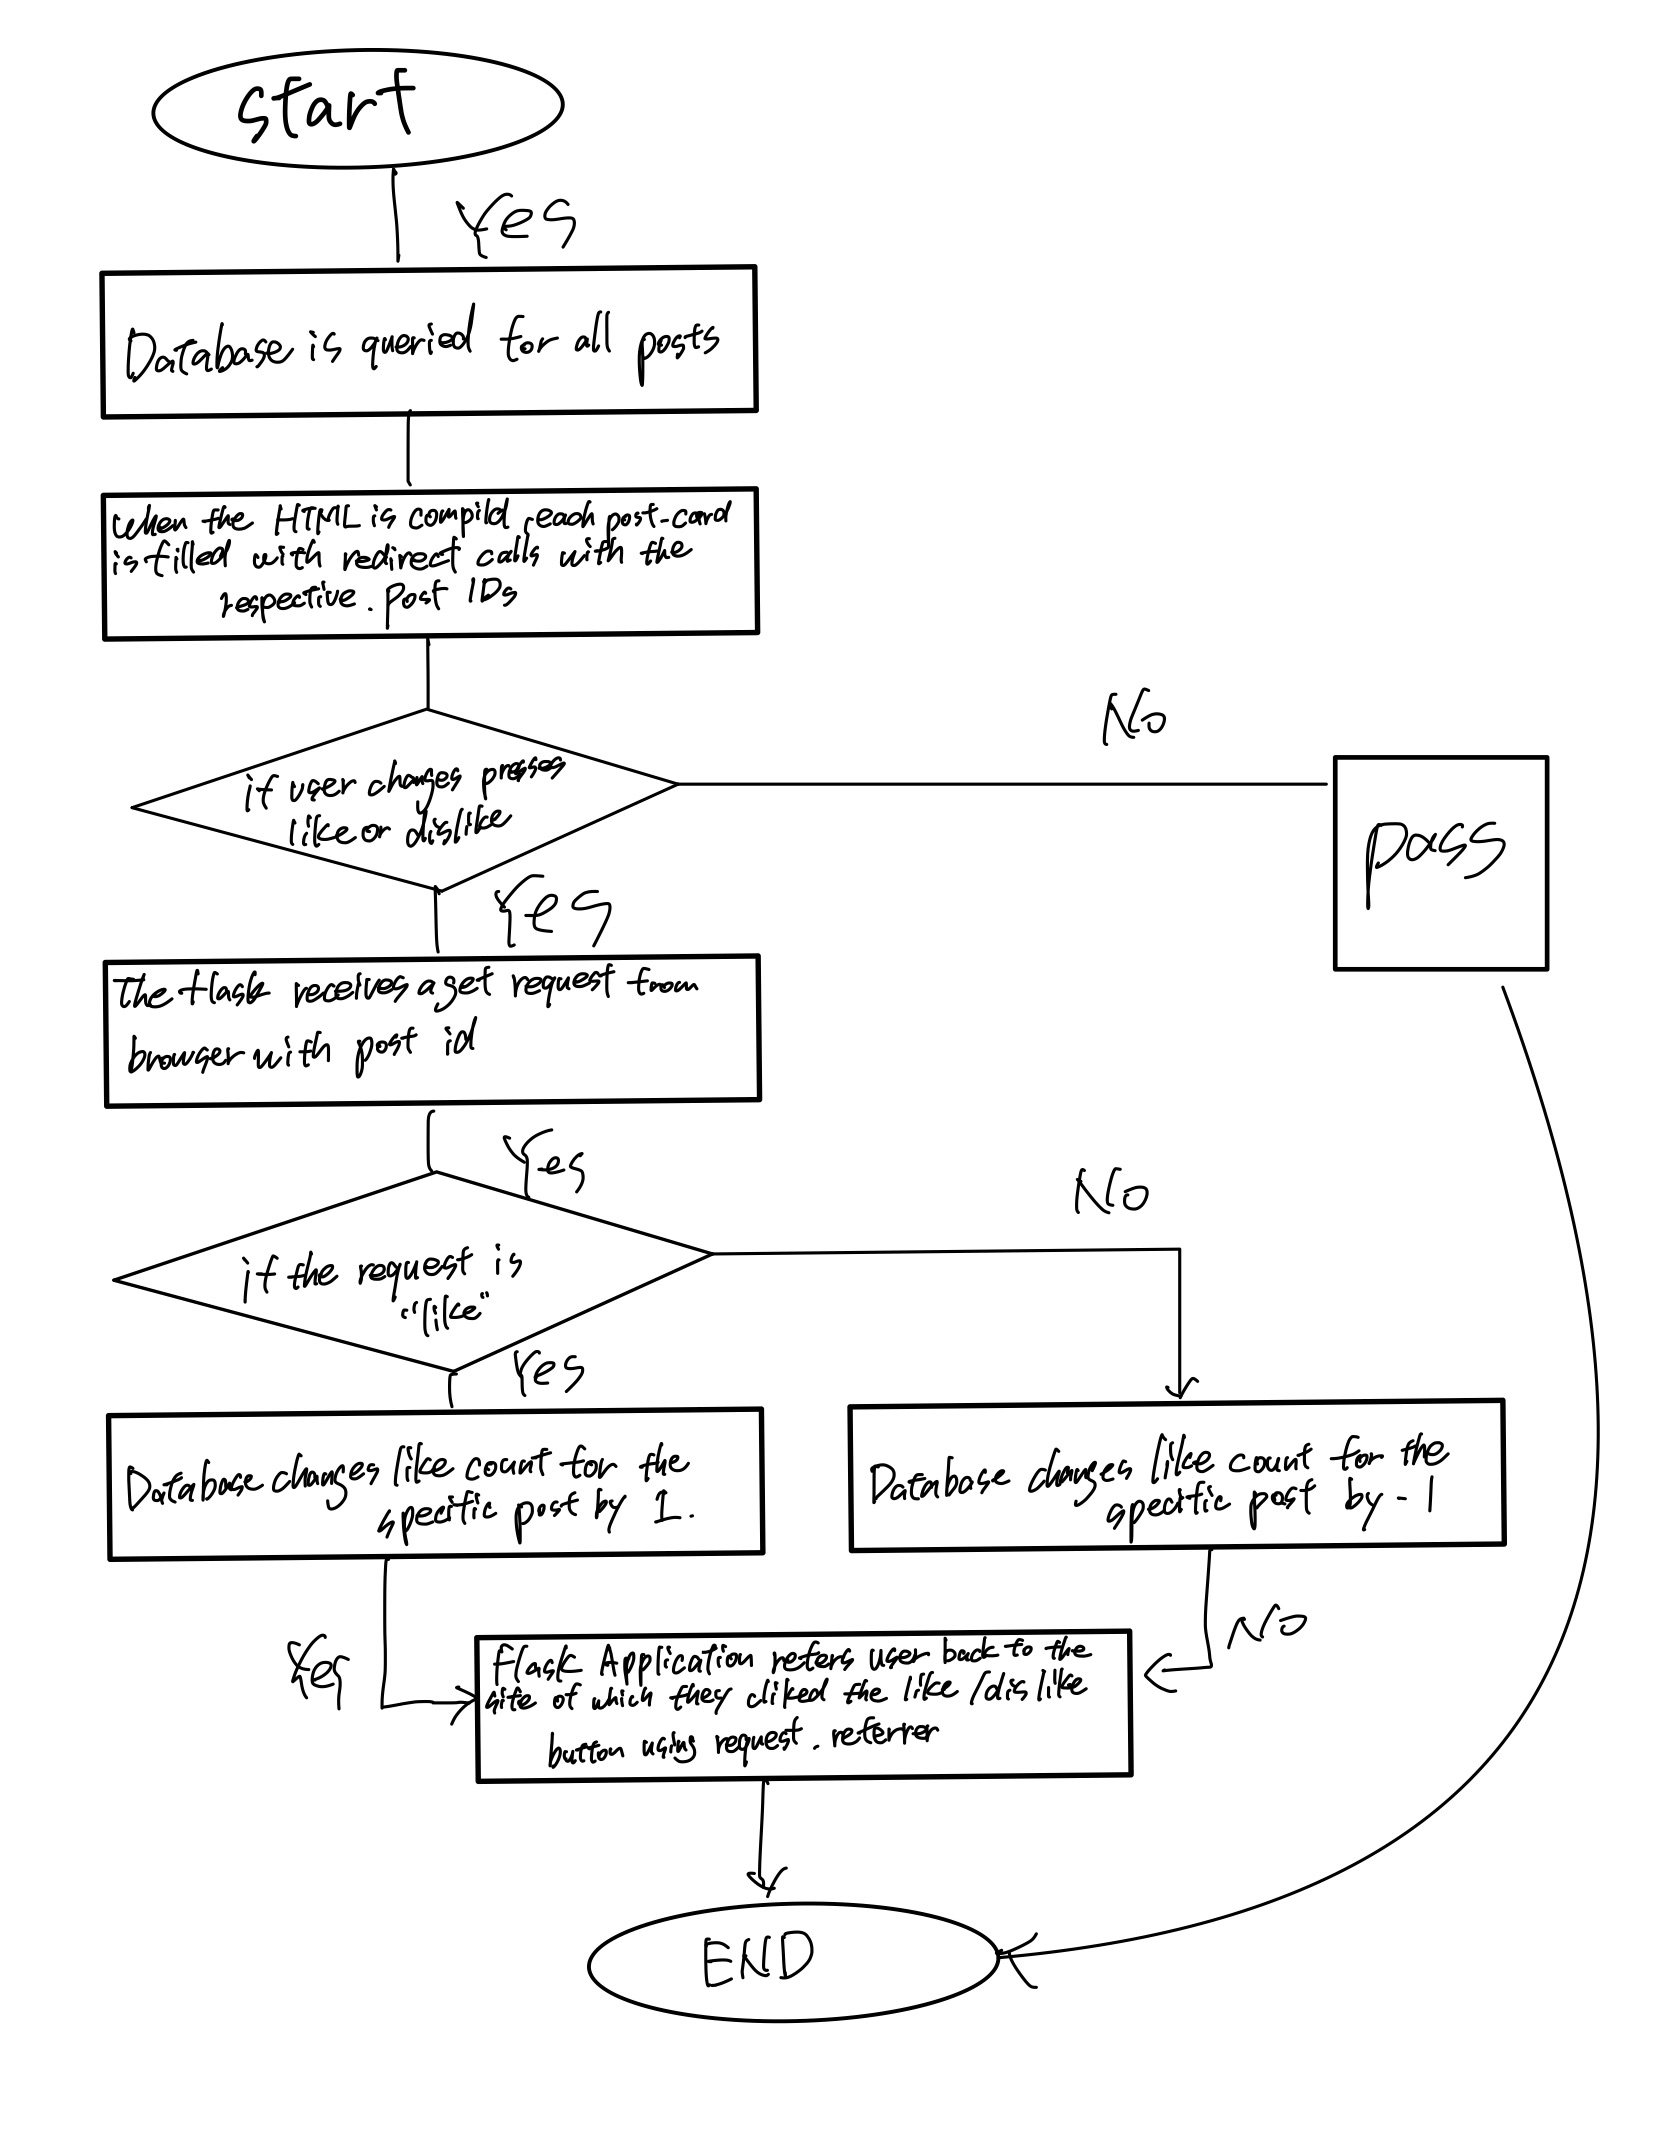 start
Yes
Database is queried for all posts
When the HTML is compild, each post-card
is filled with redirect calls with the
respective. Post IDs
if user changes presses
like or dislike
No
pass
Yes
The flask receives a get request from
browser with post id
Yes
if the request is
"like"
No
Yes
Database changes like count for the
specific post by 1.
Database changes like count for the
specific post by -1
Yes
No
Flask Application refers user back to the
site of which they cliked the like/dislike
button using request.referrer
END